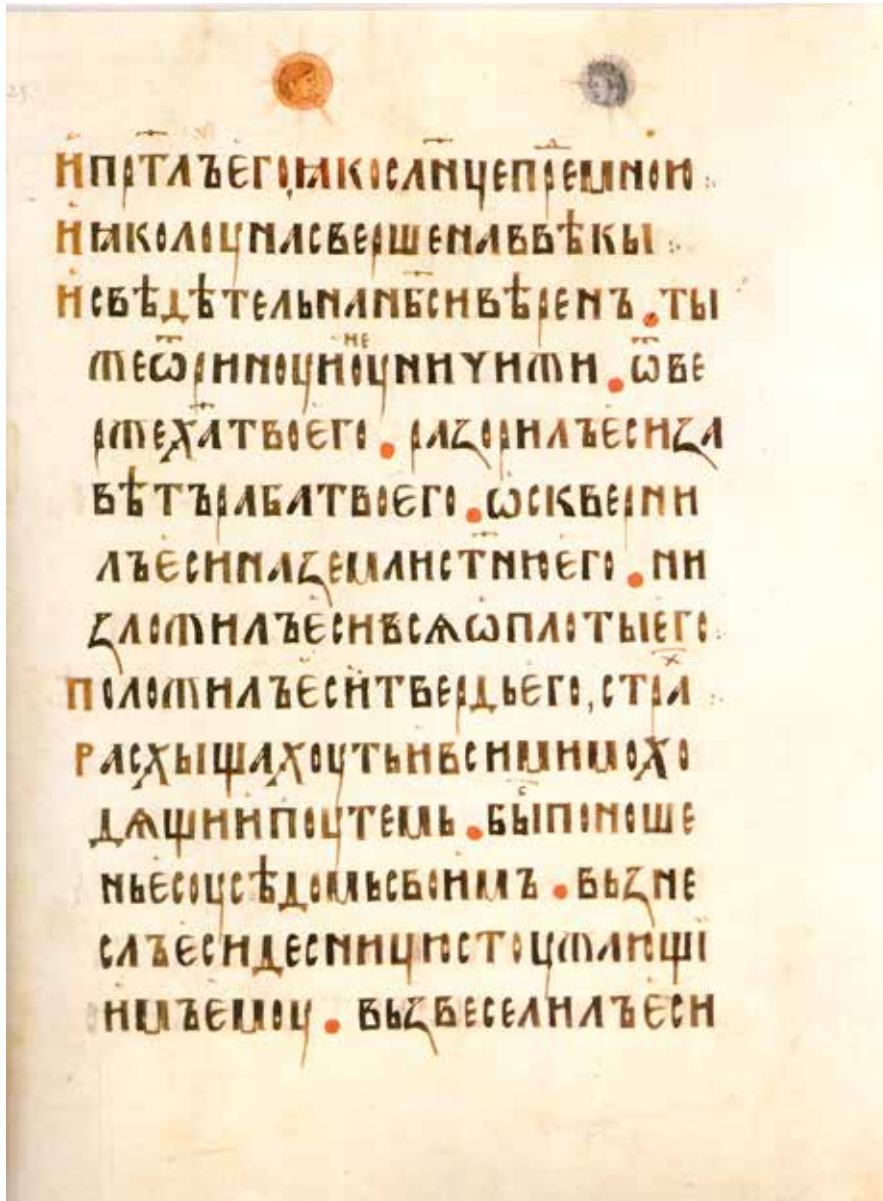 и прⷭ҇тлъ его ꙗко слн҃це предⷨ мною
и ꙗко лоуна свершена в вѣкы
и свѣдѣтель на нб҃си вѣренъ. ты
же ѿрину и оуничижи. ѿве
рже хⷭ҇а твоего. разорилъ еси за
вѣтъ раба твоего. ѡсквѣрни
лъ еси на земли ст҃ню его.
зломилъ еси всѧ ѡплоты его
положилъ еси твердь его, страⷯ
расхыщахоуть и вси мимохо
дѧщии поутемь. быⷭ поноше
нье соусѣдомъ своимъ. възне
слъ еси десницю стоужающи
имъ емоу. възвеселилъ еси